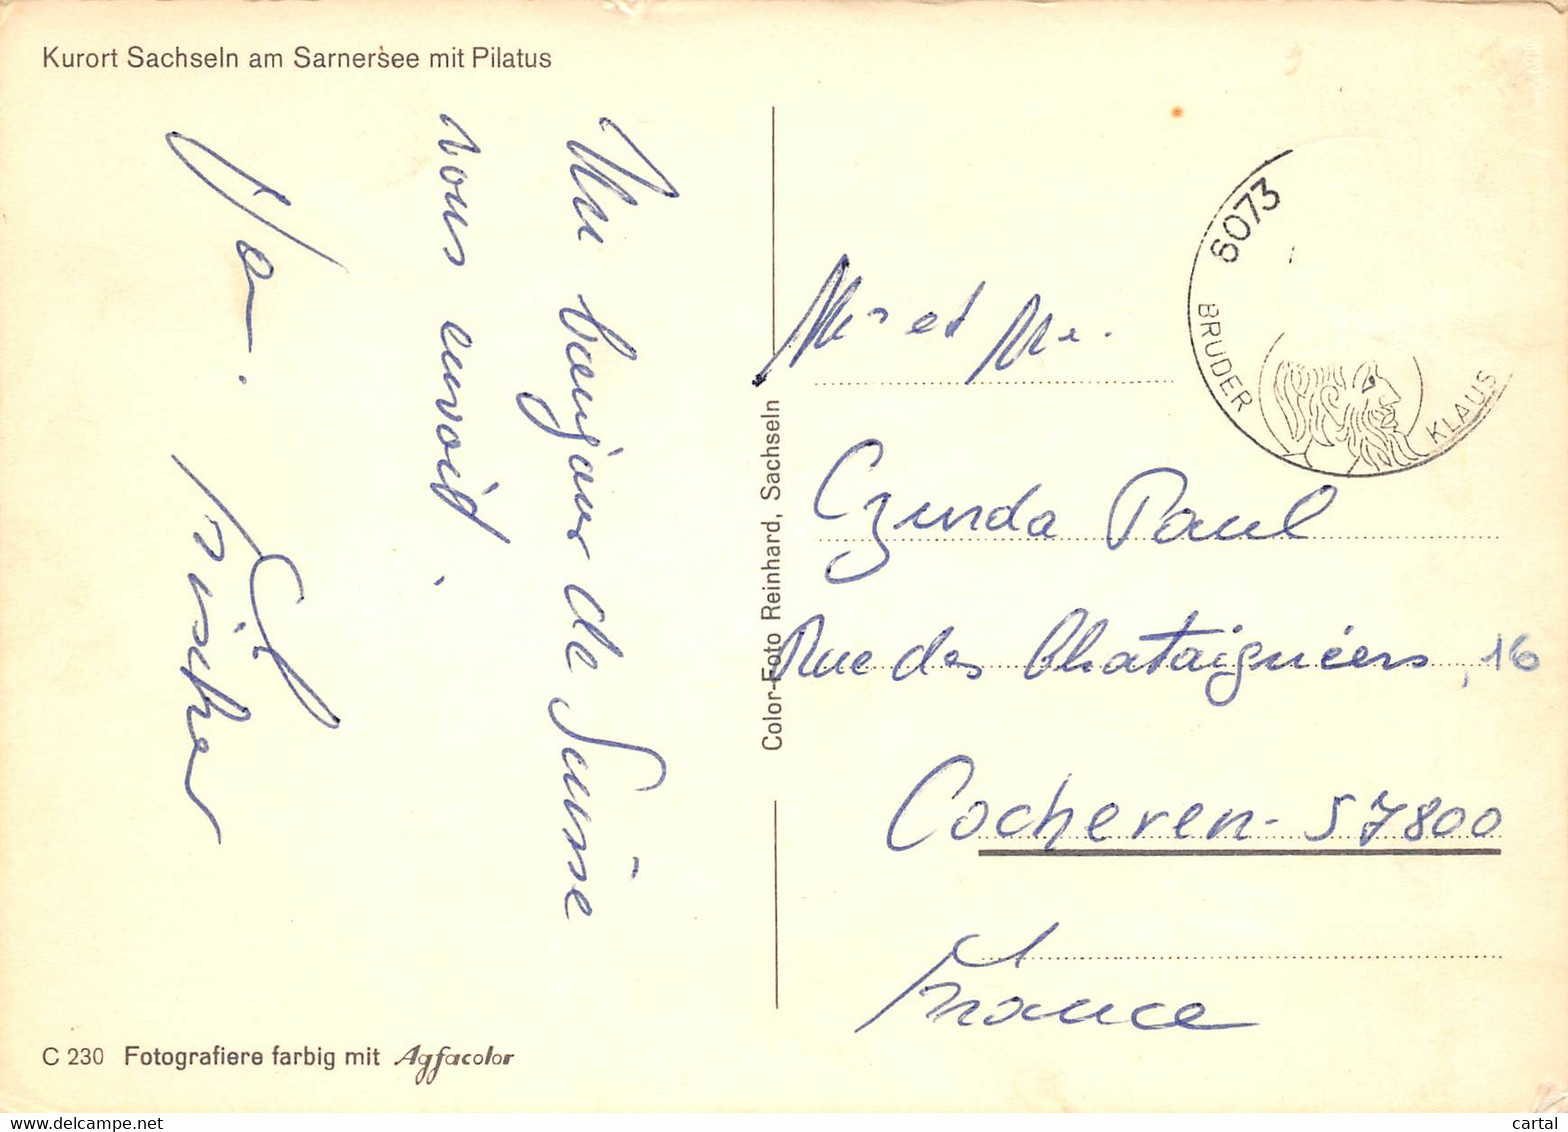 Kurort Sachseln am Sarnersee mit Pilatus
Un bonjour de Suisse
vous envoit
Fischer
C 230 Fotografiere farbig mit Agfacolor
Color-Foto Reinhard, Sachseln
6073
BRUDER KLAUS
Mr et Me.
Czunda Paul
Rue des Chataigniers, 16
Cocheren - 57800
France
cartal